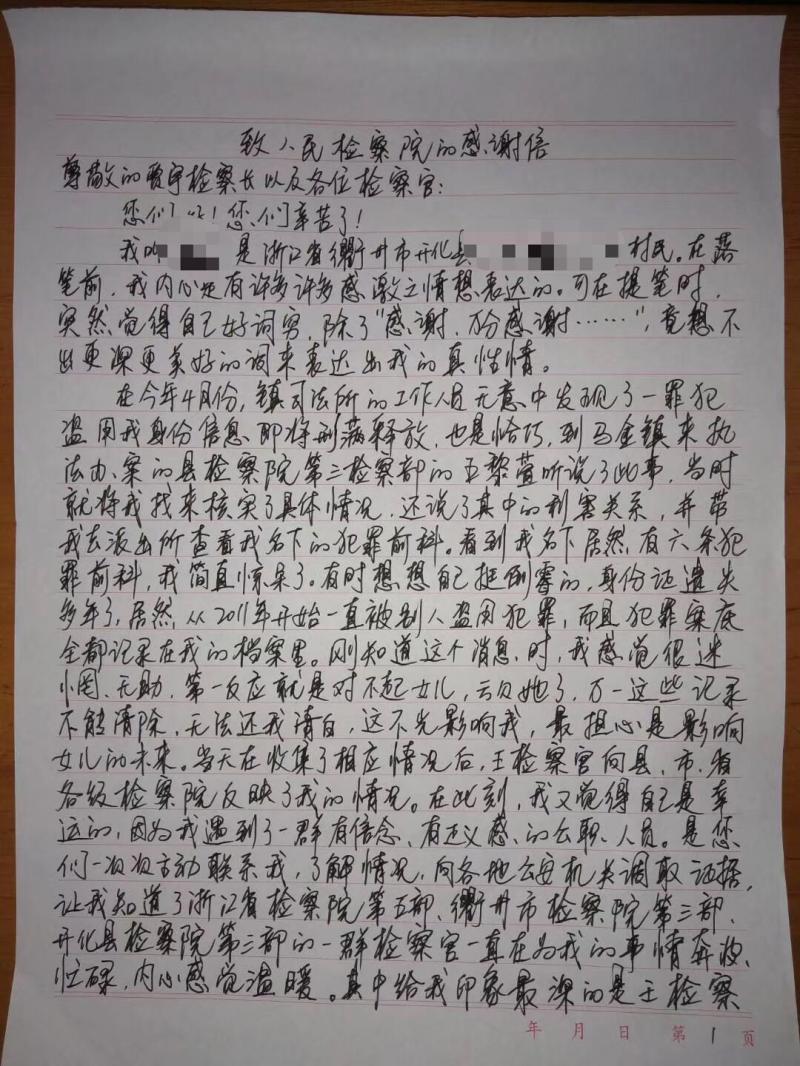 致人民检察院的感谢信
尊敬的贾宇检察长以及各位检察官:
您们好!您们辛苦了!
我叫 是浙江省衢州市开化县 村民。在落
笔前,我内心是有许多许多感激之情想表达的。可在提笔时,
突然觉得自己好词穷,除了“感谢,万分感谢……”,竟想不
出更深更美好的词来表达出我的真性情。
在今年4月份,镇司法所的工作人员无意中发现了一罪犯
盗用我身份信息即将刑满释放,也是恰巧,到马金镇来执
法办案的县检察院第三检察部的王黎萱听说了此事,当时
就将我找来核实了具体情况,还说了其中的利害关系,并带
我去派出所查看我名下的犯罪前科。看到我名下居然有六条犯
罪前科,我简直惊呆了。有时想想自己挺倒霉的,身份证遗失
多年了,居然从2011年开始一直被别人盗用犯罪,而且犯罪案底
全都记录在我的档案里。刚知道这个消息时,我感觉很迷
惘、无助,第一反应就是对不起女儿,亏欠她了,万一这些记录
不能清除,无法还我清白,这不光影响我,最担心是影响
女儿的未来。当天在收集了相应情况后,王检察官向县、市、省
各级检察院反映了我的情况。在此刻,我又觉得自己是幸
运的,因为我遇到了一群有信念、有正义感的公职人员。是您
们一次次主动联系我,了解情况,向各地公安机关调取证据,
让我知道了浙江省检察院第五部、衢州市检察院第三部、
开化县检察院第三部的一群检察官一直在为我的事情奔波、
忙碌,内心感觉温暖。其中给我印象最深的是王检察
年 月 日 第 1 页